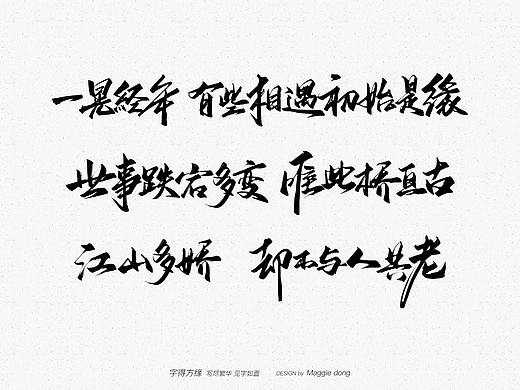 一晃経年 有些相遇初始是缘
世事跌宕多变 唯此桥亘古
江山多娇 却不与人共老
字得方缘 写尽繁华 见字如面 DESIGN by Maggie dong